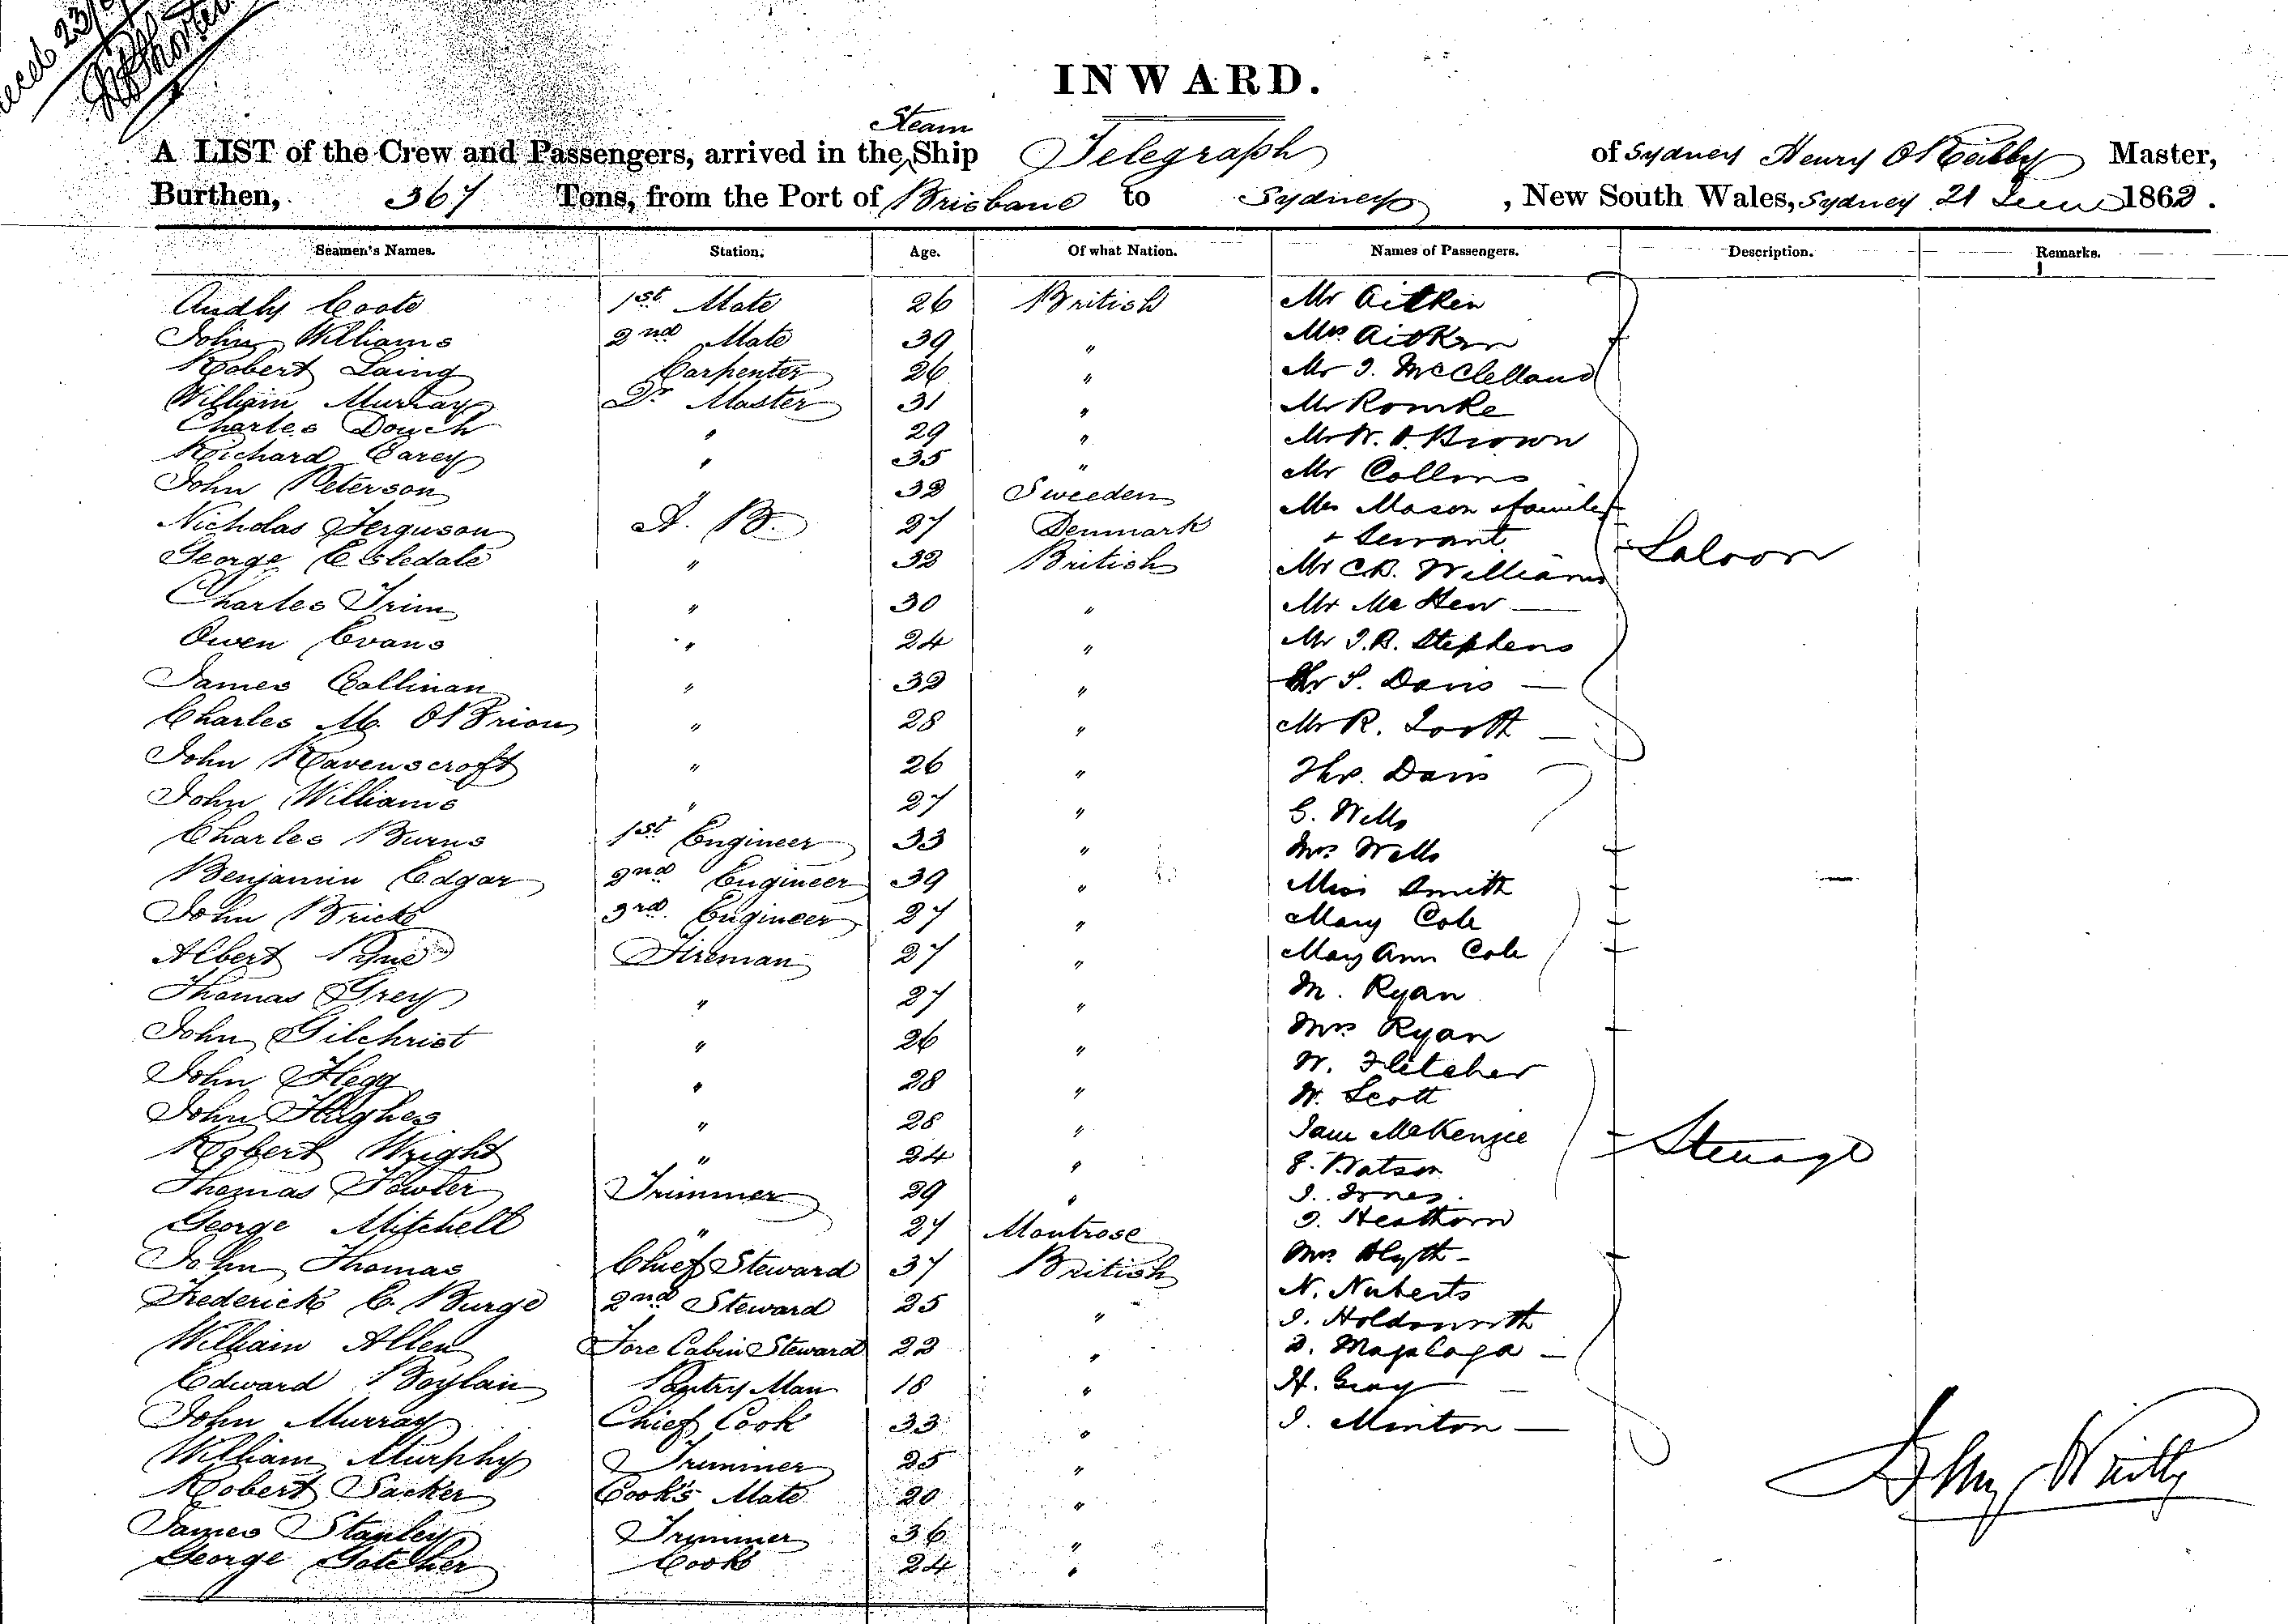 INWARD.
Steam
A LIST of the Crew and Passengers, arrived in the Ship Telegraph of Sydney Henry O'Reilly Master,
Burthen, 367 Tons, from the Port of Brisbane to Sydney, New South Wales, Sydney 21 June 1862.
Seamen's Names. Station. Age. Of what Nation. Names of Passengers. Description. Remarks.
Coote 1st Mate 26 British Mr Aitken
John Williams 2nd Mate 39 " Mrs Aitken
Robert Laing Carpenter 26 " Mr J. McClelland
William Murray Qr Master 31 " Mr Romke
Charles Douch " 29 " Mr W. Brown
Richard Carey " 35 " Mr Collins
John Peterson " 32 Sweeden Mrs Mason & family
Nicholas Ferguson A. B. 27 Denmark + Servant
George 32 British Mr C.B. Williams Saloon
Charles Trim " 30 " Mr
Owen Evans " 24 " Mr J.R. Stephens
James Callinan " 32 " S. Davis —
Charles M. O'Brion " 28 " Mr R. Tooth —
John Ravenscroft " 26 " Davis
John Williams " 27 " G. Wells
Charles Burns 1st Engineer 33 " Mrs Wells
Benjamin Edgar 2nd Engineer 39 " Miss Smith
John Brick 3rd Engineer 27 " Mary Cole
Albert Pyne Fireman 27 " Mary Ann Cole
Thomas Grey " 27 " M. Ryan
John Gilchrist " 26 " Mrs Ryan
John Flegg " 28 " W. Fletcher
John Hughes " 28 " W. Scott
Robert Wright " 24 " McKenzie Sterage
Thomas Fowler Trimmer 29 " Watson
J. Jones
George Mitchell " 27 Montrose J. Heathorn
John Thomas Chief Steward 37 British Mrs Blyth -
Frederick C. Burge 2nd Steward 25 " N. Nuberts
William Allen Fore Cabin Steward 22 " J. Holdsworth
Edward Boylain Pantry Man 18 " H. Gray —
John Murray Chief Cook 33 " J. Minton —
William Murphy Trimmer 25 "
Robert Sacker Cook's Mate 20 "
James Stanley Trimmer 36 "
George Gotcher Cook 24 "